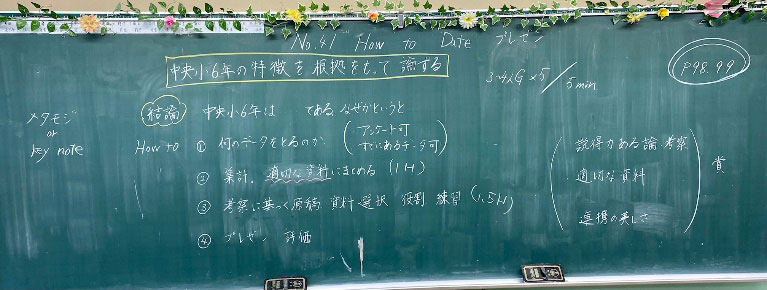 No.41 How to Date プレゼン
中央小6年の特徴を根拠をもって論ずる
3~4人G×5/5min
P98.99
メタモジ
or
key note
結論 中央小6年は である。なぜかというと
How to ① 何のデータをとるのか (アンケート可 すでにあるデータ可)
② 集計。適切な資料にまとめる (1H)
③ 考察に基づく原稿 資料選択 役割 練習 (1.5H)
④ プレゼン 評価
説得力ある論・考察
適切な資料
連携の美しさ
賞